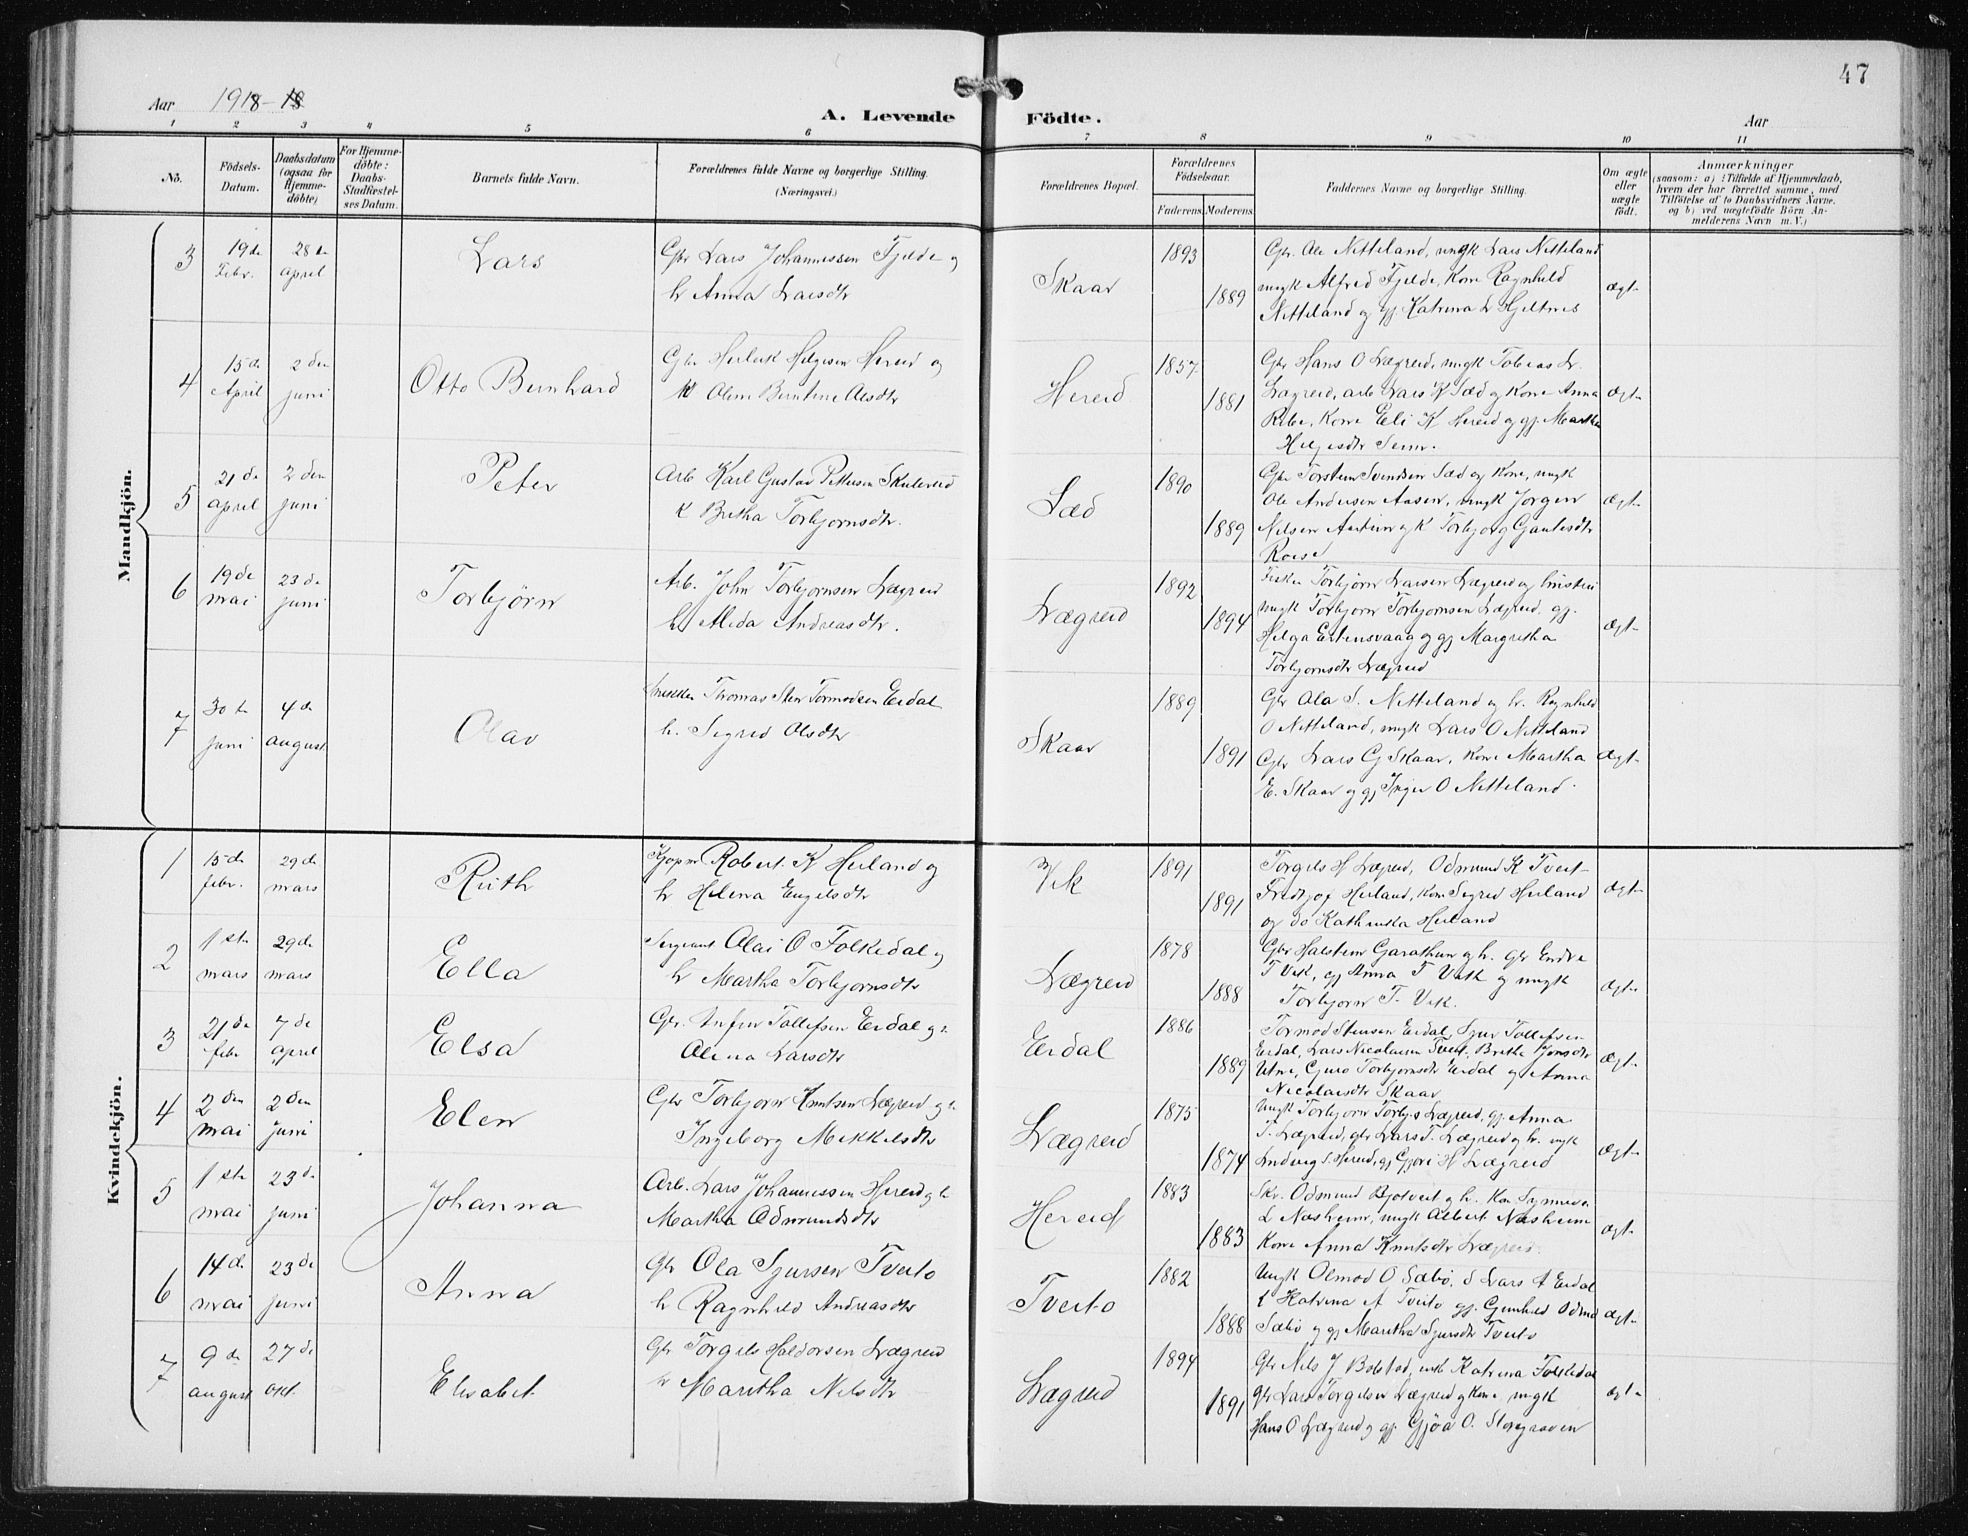 47
Aar 1918-18
A. Levende Födte.
Aar
1 2 3 4 5 6 7 8 9 10 11
No.
Födsels-Datum.
Daabsdatum (ogsaa for Hjemmedöbte)
For Hjemmedöbte: Daabs-Stadfæstelses Datum.
Barnets fulde Navn.
Forældrenes fulde Navne og borgerlige Stilling. (Næringsvei.)
Forældrenes Bopæl.
Forældrenes Födselsaar.
Faderens Moderens
Faddernes Navne og borgerlige Stilling.
Om ægte eller uægte födt.
Anmærkninger
(saasom: a) i Tilfælde af Hjemmedaab, hvem der har forrettet samme, med Tilföielse af to Daabsvidners Navne. og b) ved uægtefödte Börn Anmelderens Navn m. V.)
Mandkjön.
3 19de Febr. 28de april Lars
Gbr Lars Johannessen Fjelde og
h Anna Larsdtr
Skaar 1893 1889
Gbr. Ole Nitteland, ungk Lars Nitteland
ungk Alfred Fjelde, Kone Ragnhild
Nitteland og gj Katrina L Hjeltnes
ægt-
4 15de April 2den juni Otto Bernhard
Gbr Helgesen Hereid og
Bentine Olsdtr
Hereid 1857 1881
Gbr Hans O Lægreid, ungk Tobias L.
Lægreid, arb Lars K Sæd og Kone Anna
Kone Eli K Hereid og gj. Martha
Helgesdtr
ægt-
5 21de april 2den juni Peter
Arb Karl Gustav Pettersen
K Britha Torbjornsdtr.
Sæd 1890 1889
Gbr Torstein Svendsen Sæd og Kone, ungk
Ole Andersen Aasen, ungk Jorgen
Nilsen og K Torbjorg Gautesdtr
ægt-
6 19de mai 23de juni Torbjörn
Arb. John Torbjornsen Lægreid
h Alida Andreasdtr.
Lægreid 1892 1894
Torbjörn Larsen Lægreid og
ungk Torbjorn Torbjornsen Lægreid, gj.
Helga og gj Margretha
Torbjornsdtr Lægreid
ægt-
7 30te juni 4de august Olav
Thomas Sten Tormodsen Eidal
h. Sigrid Olsdtr
Skaar 1889 1891
Gbr Ola S. Nitteland og h. Ragnhild
O Nitteland, ungk Lars O Nitteland
Gbr Lars G Skaar, Kone Martha
E. Skaar og gj Inger O Nitteland.
ægt-
Kvindekjön.
1 15de febr. 29de mars Ruth
Kjopm Robert K Heiland og
h Helena Engelsdtr
Vik 1891 1891
Torgils H Lægreid, Odmund K Tveit
Fredjof Heiland, Kone Sigrid Heiland
og do Kathinka Heiland
ægt-
2 1ste mars 29de mars Ella
Sergeant Olai O Folkedal og
h Martha Torbjornsdtr
Lægreid 1878 1888
Gbr Halstein Garathun og h. gbr Endre
T Vik, gj Anna T Vik og ungk
Torbjorn T. Vik.
ægt-
3 21de febr 7de april Elsa
Gbr. Tollefsen Eidal og h.
Alina Larsdtr
Eidal 1886 1889
Tormod Stensen Eidal, Sjur Tollefsen
Eidal, Lars Nicolaisen Tveit, Britha Jonsdtr
Utne, Guro Torbjornsdtr Eidal og Anna
Nicolaisdtr Skaar
ægt-
4 2den mai 2den juni Elen
Gbr Torbjorn Knutsen Lægreid og h.
Ingeborg Mikkelsdtr
Lægreid 1875 1874
Ungk Torbjorn Lægreid, gj Anna
T. Lægreid, gbr Lars T. Lægreid og h. ungk
Ludvig S. Hereid, gj H Lægreid
ægt-
5 1ste mai 23de juni Johanna
Arb. Lars Johannessen Hereid og h.
Martha Odmundsdtr
Hereid 1883 1883
Odmund Bjotveit og h. Kone Synneva
L Næsheim, ungk Albert Næsheim
Kone Anna Knutsdtr Lægreid.
ægt-
6 14de mai 23de juni Anna
Gbr Ola Sjursen Tveito
h Ragnhild Andreasdtr
Tveito 1882 1888
Ungk Olmod O Sæbö, Lars A Eidal
Katrina A Tveito gj. Gunhild
Sæbö og gj Maritha Sjursdtr Tveito
ægt-
7 9de august 27de okt. Elisabet
Gbr Torgils Haldorsen Lægreid
h Maritha Nilsdtr
Lægreid 1894 1891
Gbr Nils J Bolstad, Katrina Folkedal
Gbr Lars Torgilsen Lægreid og Kone, ungk
Hans O Lægreid og gj. Gjöa O. Storegraven
ægt-